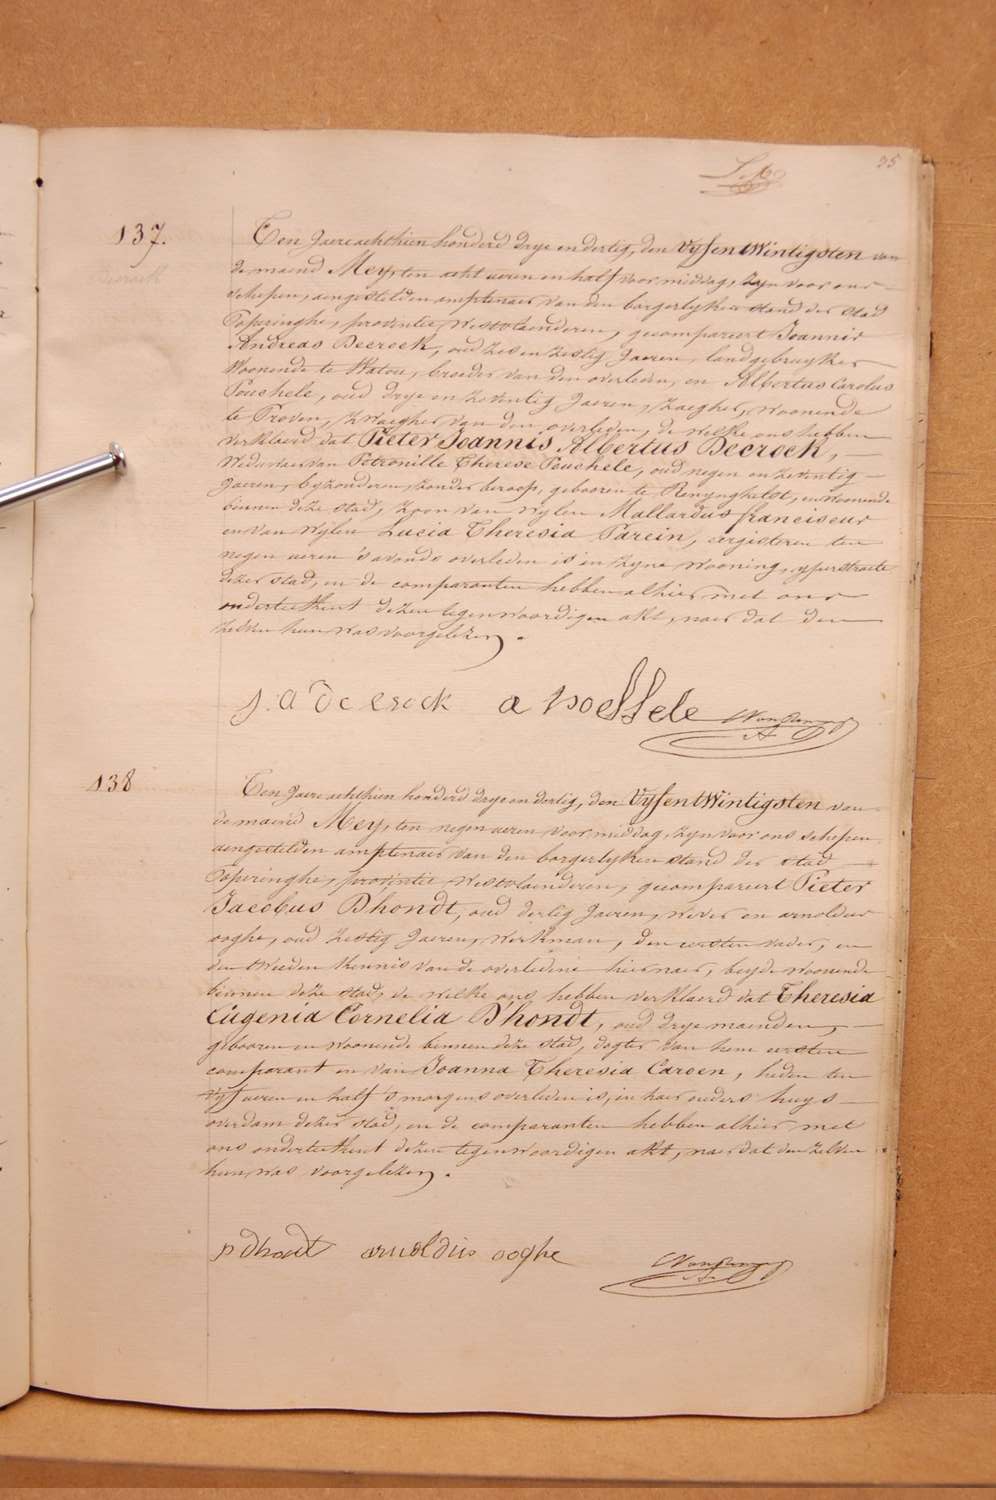 35
137.
Ten Jaere achthien honderd drye en dertig, den Vyf en twintigsten van
de maend Mey, ten acht ueren en half voor middag, zyn voor ons
schepen, aengestelden amptenaer van den borgerlyken stand der stad
Poperinghe, provintie Westvlaenderen, gecompareert Joannis
Andreas Decrock, oud zes en zestig Jaeren, landgebruyker
Woonende te Watou, broeder van den overleden, en Albertus Carolus
Pouchele, oud drye en zeventig Jaeren, zaegher, woonende
te Proven, zwaegher van den overleden, de welke ons hebben
verklaerd dat Pieter Joannis Albertus Decrock,
Weduwaer van Petronille Therese Pouchele, oud negen en zeventig
Jaeren, byzonderen, zonder beroep, gebooren te Renynghelst, en woonende
binnen deze stad, zoon van wylen Mallardus franciscus
en van wylen Lucia Theresia Parein, eergisteren ten
negen ueren 's avonds overleden is in zyne wooning, yperstraete
dezer stad, en de comparanten hebben alhier met ons
onderteekent dezen tegenwoordigen akt, naer dat den
zelven hun was voorgelezen.
j. a decrock a poessele
138
Ten Jaere achthien honderd drye en dertig, den Vyf en twintigsten van
de maend Mey, ten negen ueren voor middag, zyn voor ons schepen
aengestelden amptenaer van den borgerlyken stand der stad
Poperinghe, provintie Westvlaenderen, gecompareert Pieter
Jacobus Dhondt, oud dertig Jaeren, wever en arnoldus
ooghe, oud zestig Jaeren, werkman, den eersten vader, en
den tweeden kennis van de overledene hiernaer, beyde woonende
binnen deze stad, de welke ons hebben verklaerd dat Theresia
Eugenia Cornelia D'hondt, oud drye maenden,
gebooren en woonende binnen deze stad, dogter van hem eersten
comparant en van Joanna Theresia Caroen, heden ten
vyf ueren en half 's morgens overleden is, in haer ouders huys
overdam dezer stad, en de comparanten hebben alhier met
ons onderteekent dezen tegenwoordigen akt, naer dat den zelven
hun was voorgelezen.
p dhondt arnoldus ooghe